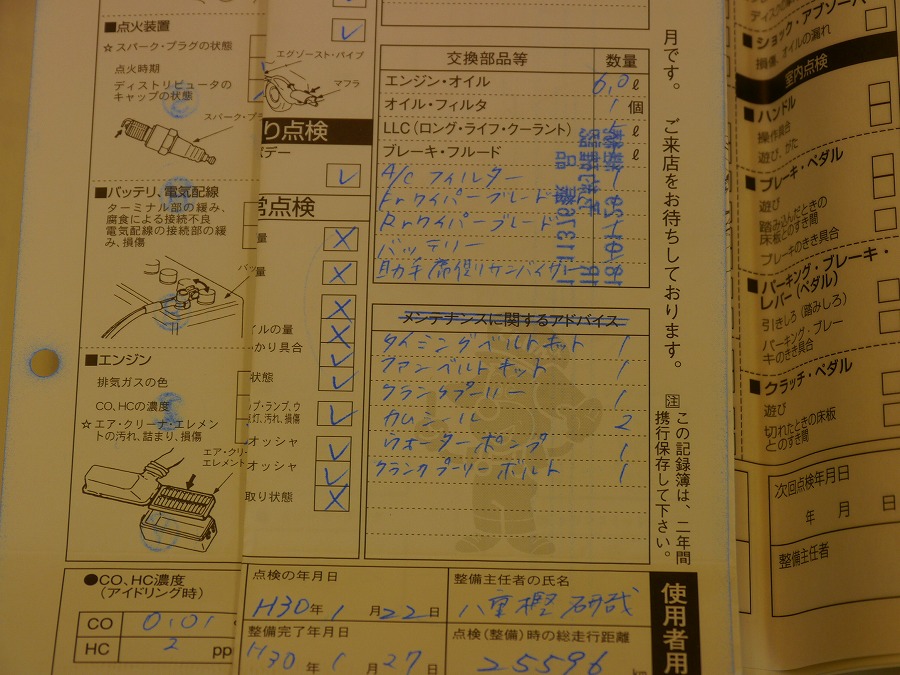 ■点火装置
☆スパーク・プラグの状態
点火時期
ディストリビュータの
キャップの状態
スパーク・プラ
■バッテリ、電気配線
ターミナル部の緩み、
腐食による接続不良
電気配線の接続部の緩
み、損傷
■エンジン
排気ガスの色
CO、HCの濃度
☆エア・クリーナ・エレメン
トの汚れ、詰まり、損傷
エア・クリー
エレメント
●CO、HC濃度
(アイドリング時)
CO 0.01
HC 2 pp
エグゾースト・パイプ
マフラ
り点検
ボデー
常点検
量
量
イルの量
かり具合
状態
プ・ランプ、ウ
灯、汚れ、損傷
オッシャ
オッシャ
取り状態
交換部品等 数量
エンジン・オイル 6.0 ℓ
オイル・フィルタ 1 個
LLC(ロング・ライフ・クーラント) ℓ
ブレーキ・フルード ℓ
A/C フィルター 1
Frワイパーブレード
Rrワイパーブレード
バッテリー
助手席側サンバイザー
メンテナンスに関するアドバイス
タイミングベルトキット 1
ファンベルトキット 1
クランクプーリー 1
カムシール 2
ウォーターポンプ 1
クランクプーリーボルト 1
点検の年月日
H30年 1月22日
整備完了年月日
H30年 1月27日
整備主任者の氏名
点検(整備)時の総走行距離
25596 km
使用者用
月です。 ご来店をお待ちしております。
注 この記録簿は、二年間
携行保存して下さい。
ショック・アブソーバ
損傷、オイルの漏れ
室内点検
■ハンドル
操作具合
遊び、がた
■ブレーキ・ペダル
遊び
踏み込んだときの
床板とのすき間
ブレーキのきき具合
■パーキング・ブレーキ・
レバー(ペダル)
引きしろ(踏みしろ)
パーキング・ブレー
キのきき具合
■クラッチ・ペダル
遊び
切れたときの床板
とのすき間
次回点検年月日
年 月 日
整備主任者